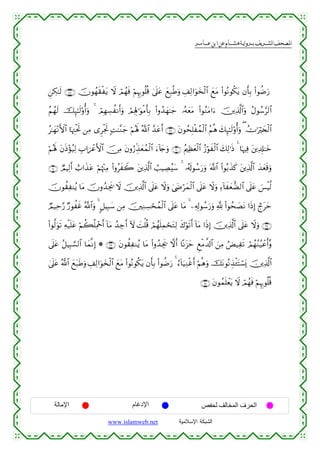 المصحف الشريف برواية هشام عن ابن عامر
رَضُوا۟ بِأَن يَكُونُوا۟ مَعَ ٱلْخَوَالِفِ وَطُبِعَ عَلَىٰ قُلُوبِهِمْ فَهُمْ لَا يَفْقَهُونَ لَٰكِنِ
ٱلرَّسُولُ وَٱلَّذِينَ ءَامَنُوا۟ مَعَهُۥ جَٰهَدُوا۟ بِأَمْوَٰلِهِمْ وَأَنفُسِهِمْ ۚ وَأُو۟لَٰٓئِكَ لَهُمُ
ٱلْخَيْرَٰتُ ۖ وَأُو۟لَٰٓئِكَ هُمُ ٱلْمُفْلِحُونَ أَعَدَّ ٱللَّهُ لَهُمْ جَنَّٰتٍ تَجْرِى مِن تَحْتِهَا ٱلْأَنْهَٰرُ
خَٰلِدِينَ فِيهَا ۚ ذَٰلِكَ ٱلْفَوْزُ ٱلْعَظِيمُ وَجَآءَ ٱلْمُعَذِّرُونَ مِنَ ٱلْأَعْرَابِ لِيُؤْذَنَ لَهُمْ
وَقَعَدَ ٱلَّذِينَ كَذَبُوا۟ ٱللَّهَ وَرَسُولَهُۥ ۚ سَيُصِيبُ ٱلَّذِينَ كَفَرُوا۟ مِنْهُمْ عَذَابٌ أَلِيمٌ
لَّيْسَ عَلَى ٱلضُّعَفَآءِ وَلَا عَلَى ٱلْمَرْضَىٰ وَلَا عَلَى ٱلَّذِينَ لَا يَجِدُونَ مَا يُنفِقُونَ
حَرَجٌ إِذَا نَصَحُوا۟ لِلَّهِ وَرَسُولِهِۦ ۚ مَا عَلَى ٱلْمُحْسِنِينَ مِن سَبِيلٍ ۚ وَٱللَّهُ غَفُورٌ رَّحِيمٌ
وَلَا عَلَى ٱلَّذِينَ إِذَا مَآ أَتَوْكَ لِتَحْمِلَهُمْ قُلْتَ لَآ أَجِدُ مَآ أَحْمِلُكُمْ عَلَيْهِ تَوَلَّوا۟
وَّأَعْيُنُهُمْ تَفِيضُ مِنَ ٱلدَّمْعِ حَزَنًا أَلَّا يَجِدُوا۟ مَا يُنفِقُونَ ۞ إِنَّمَا ٱلسَّبِيلُ عَلَى
ٱلَّذِينَ يَسْتَـْٔذِنُونَكَ وَهُمْ أَغْنِيَآءُ ۚ رَضُوا۟ بِأَن يَكُونُوا۟ مَعَ ٱلْخَوَالِفِ وَطَبَعَ ٱللَّهُ عَلَىٰ
قُلُوبِهِمْ فَهُمْ لَا يَعْلَمُونَ
الحرف المخالف لحفص الإدغام الإمالة
الشبكة الإسلامية www.islamweb.net